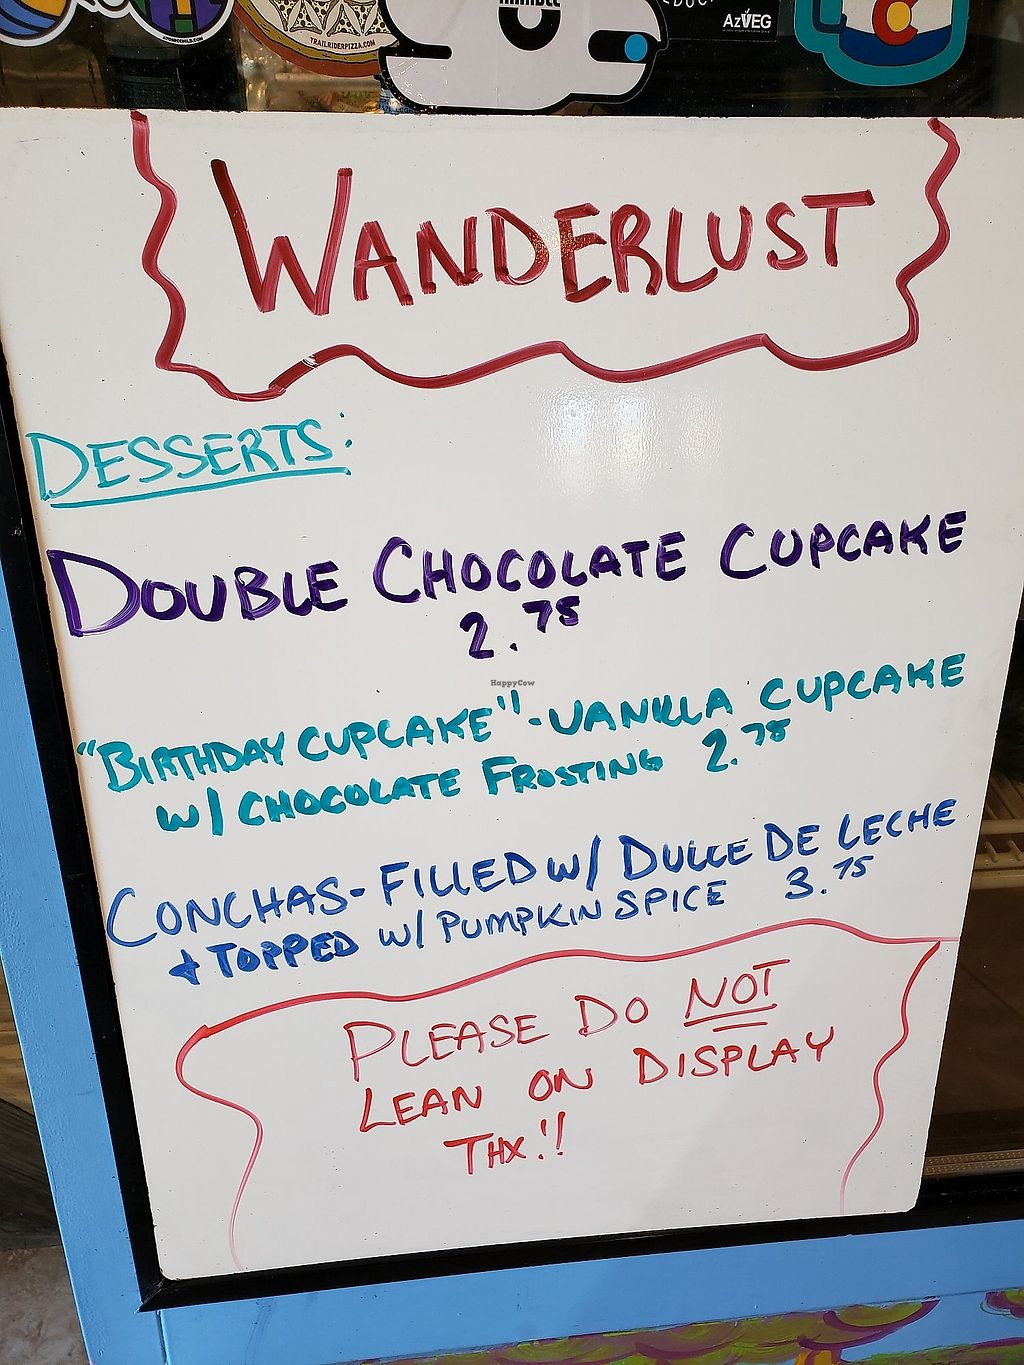 TRAILRIDERPIZZA.COM
AZVEG
WANDERLUST
DESSERTS:
DOUBLE CHOCOLATE CUPCAKE
2.75
"BIRTHDAY CUPCAKE"-VANILLA CUPCAKE
W/ CHOCOLATE FROSTING 2.75
CONCHAS-FILLED W/ DULCE DE LECHE
+ TOPPED W/ PUMPKIN SPICE 3.75
PLEASE DO NOT
LEAN ON DISPLAY
THX!!
HappyCow